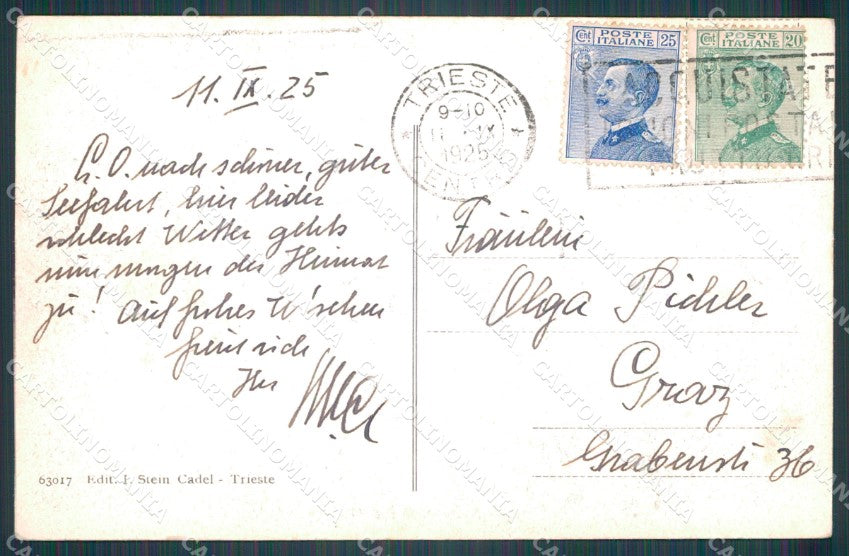 11. IX. 25
L. O. nach schöner, guter
Seefahrt, hier leider
schlecht Wetter gehts
nun morgen der Heimat
zu! Auf frohes W'sehen
freut sich
Ihr
63017 Edit. F. Stein Cadel - Trieste
TRIESTE
9-10
11 IX
1925
CENTRO
Cent POSTE ITALIANE 25
Cent POSTE ITALIANE 20
ACQUISTATE
Fräulein
Olga Pichler
Graz
Grabenstr 36
CARTOLINOMANIA